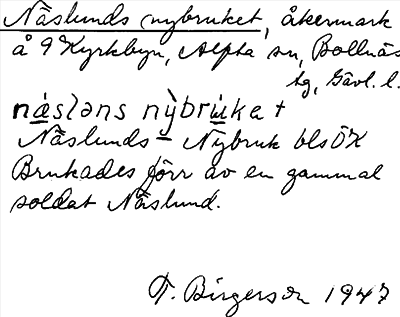 Näslunds nybruket, åkermark
å 9 Kyrkbyn, Alfta sn, Bollnäs
tg, Gävl. l.
näslans nỳbruka t
Näslunds - Nybruk bls ÖK
Brukades förr av en gammal
soldat Näslund.
T. Birgerson 1947